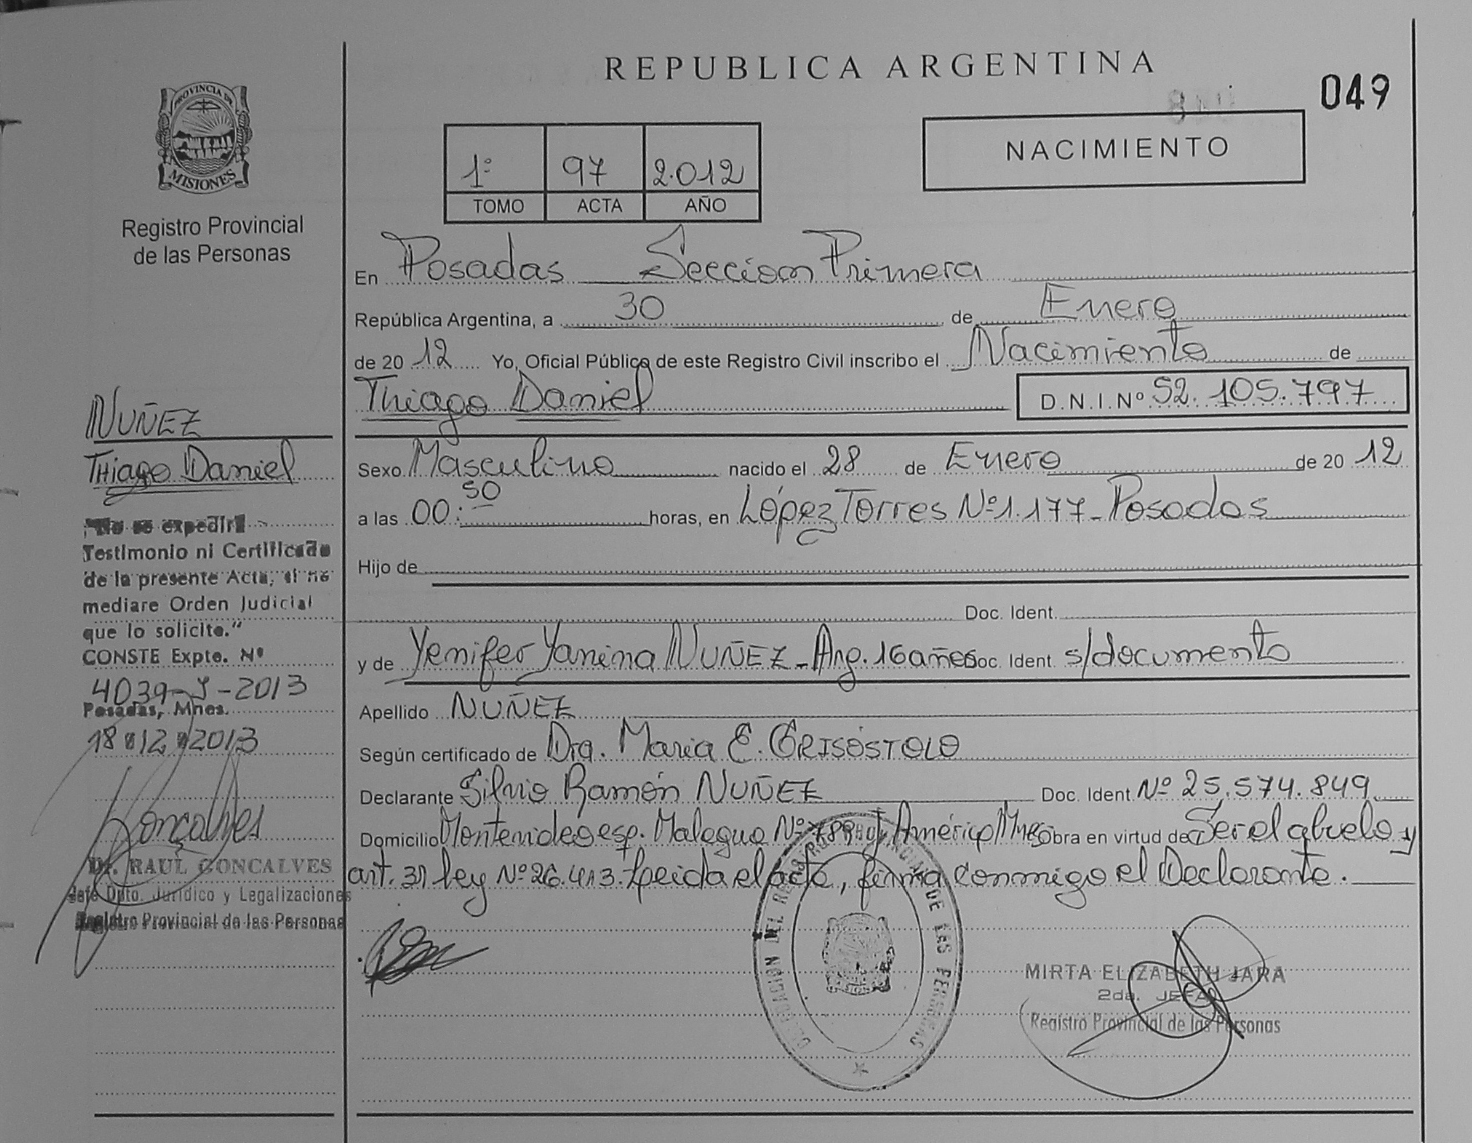 REPUBLICA ARGENTINA
049
PROVINCIA DE
MISIONES
Registro Provincial
de las Personas
1º 97 2.012
TOMO ACTA AÑO
NACIMIENTO
En Posadas Seccion Primera
República Argentina, a 30 de Enero
de 20 12 Yo, Oficial Público de este Registro Civil inscribo el Nacimiento de
Thiago Daniel D.N.I.Nº 52.105.797
Sexo Masculino nacido el 28 de Enero de 20 12
a las 00:50 horas, en López Torres Nº 1.177 - Posadas
Hijo de
Doc. Ident.
y de Yenifer Yanina NUÑEZ - Arg. 16 años Doc. Ident. s/documento
Apellido NUÑEZ
Según certificado de Dra. Maria E. GRISÓSTOLO
Declarante Silvio Ramón NUÑEZ Doc. Ident. Nº 25.574.849
Domicilio Montevideo esq. Malegua Nº Américo Obra en virtud de Ser el abuelo y
art. 31 ley Nº 26.413. Leida el acta, firma conmigo el Declarante.
NUÑEZ
Thiago Daniel
"No se expedirá
Testimonio ni Certificado
de la presente Acta, si no
mediare Orden Judicial
que lo solicite."
CONSTE Expte. Nº
4039-J-2013
Posadas, Mnes.
18 12 2013
Gonçalves
Dr. RAUL GONCALVES
Jefe Dpto. Jurídico y Legalizaciones
Registro Provincial de las Personas
DEL DE LAS PERSONAS
MIRTA ELIZABETH JARA
2da. JEFA
Registro Provincial de las Personas